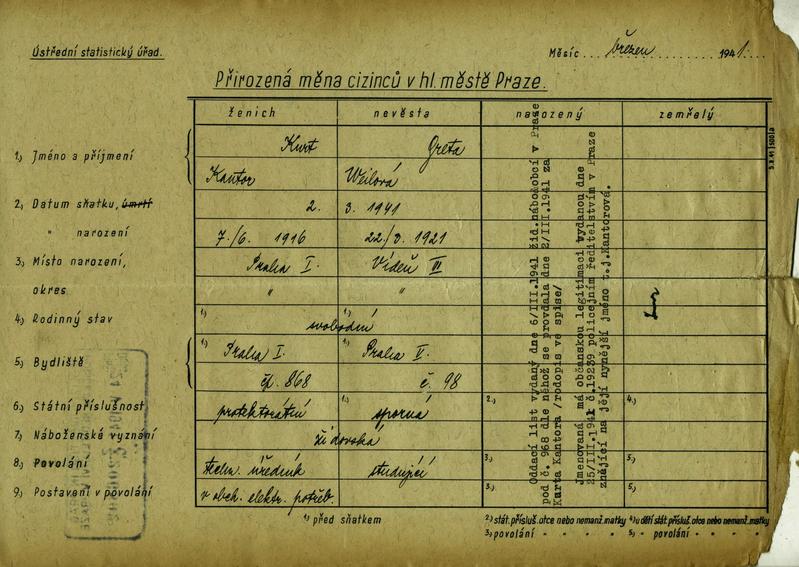 Ústřední statistický úřad.
Měsíc březen 1941.
Přirozená měna cizinců v hl. městě Praze.
ženich nevěsta narozený zemřelý
1.) Jméno a příjmení
Kurt Greta
Kantor Weilová
2.) Datum sňatku, úmrtí 2. 3. 1941
" narození 7./6. 1916 22./3. 1921
3.) Místo narození, Praha I. Vídeň III
okres " "
4.) Rodinný stav 1) svobodní 1)
5.) Bydliště 1) Praha I. 1) Praha V.
čp. 868 č. 98
6.) Státní příslušnost protektorátní 1) sporná 2.) 4.)
7.) Náboženské vyznání židovská
8.) Povolání techn. úředník studující 3.) 5.)
9.) Postavení v povolání v obch. elektr. potřeb. 3.) 5.)
1) před sňatkem
2.) stát. přísluš. otce nebo nemanž. matky 4.) u dětí stát. přísluš. otce nebo nemanž. matky
3.) povolání " " " " 5.) " povolání " " " "
Oddací list vydaný dne 6/III.1941 žid.nábož.obcí v Praze
pod č. 968 dle něhož se provdala dne 2/III.1941 za
Kurta Kantora /rodopis ve spise/
Jmenovaná má občanskou legitimaci vydanou dne
25/III.1941 č.19239 policejním ředitelstvím v Praze
znějící na její nynější jméno t.j.Kantorová.